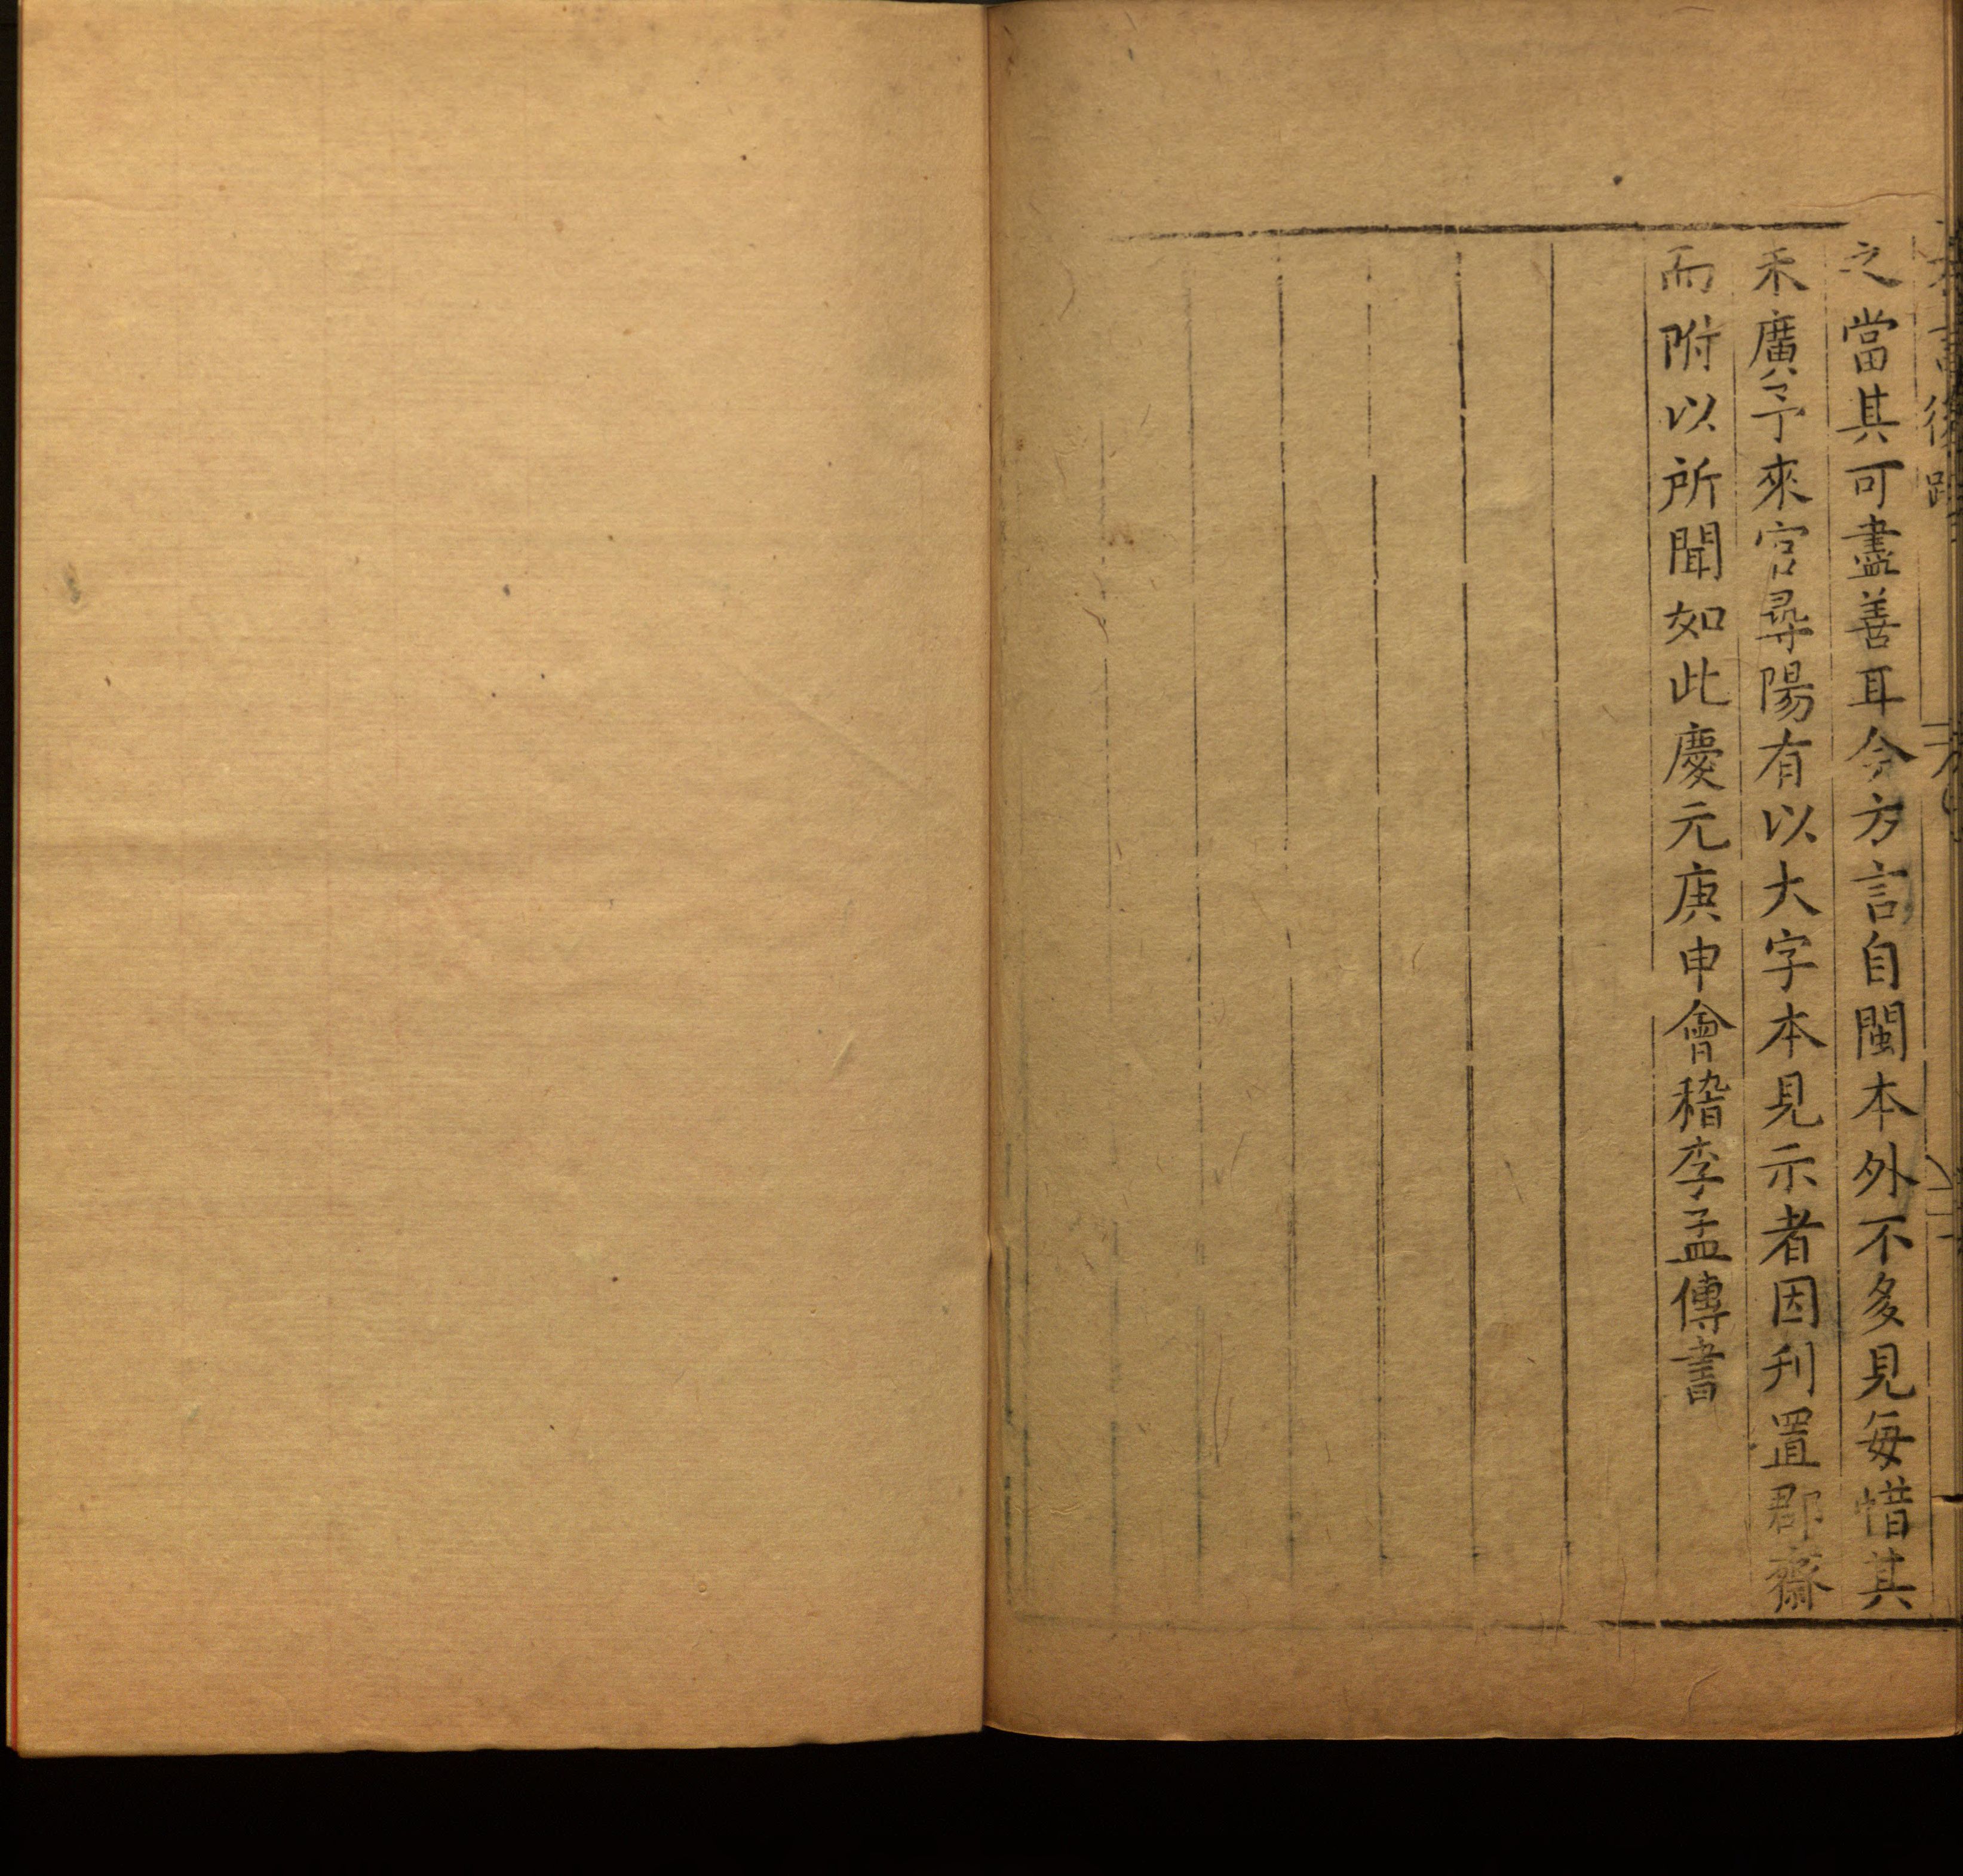 之當其可盡善耳今方言自閩本外不多見每惜其
未廣予來官尋陽有以大字本見示者因刊置郡齋
而附以所聞如此慶元庚申會稽李孟傳書